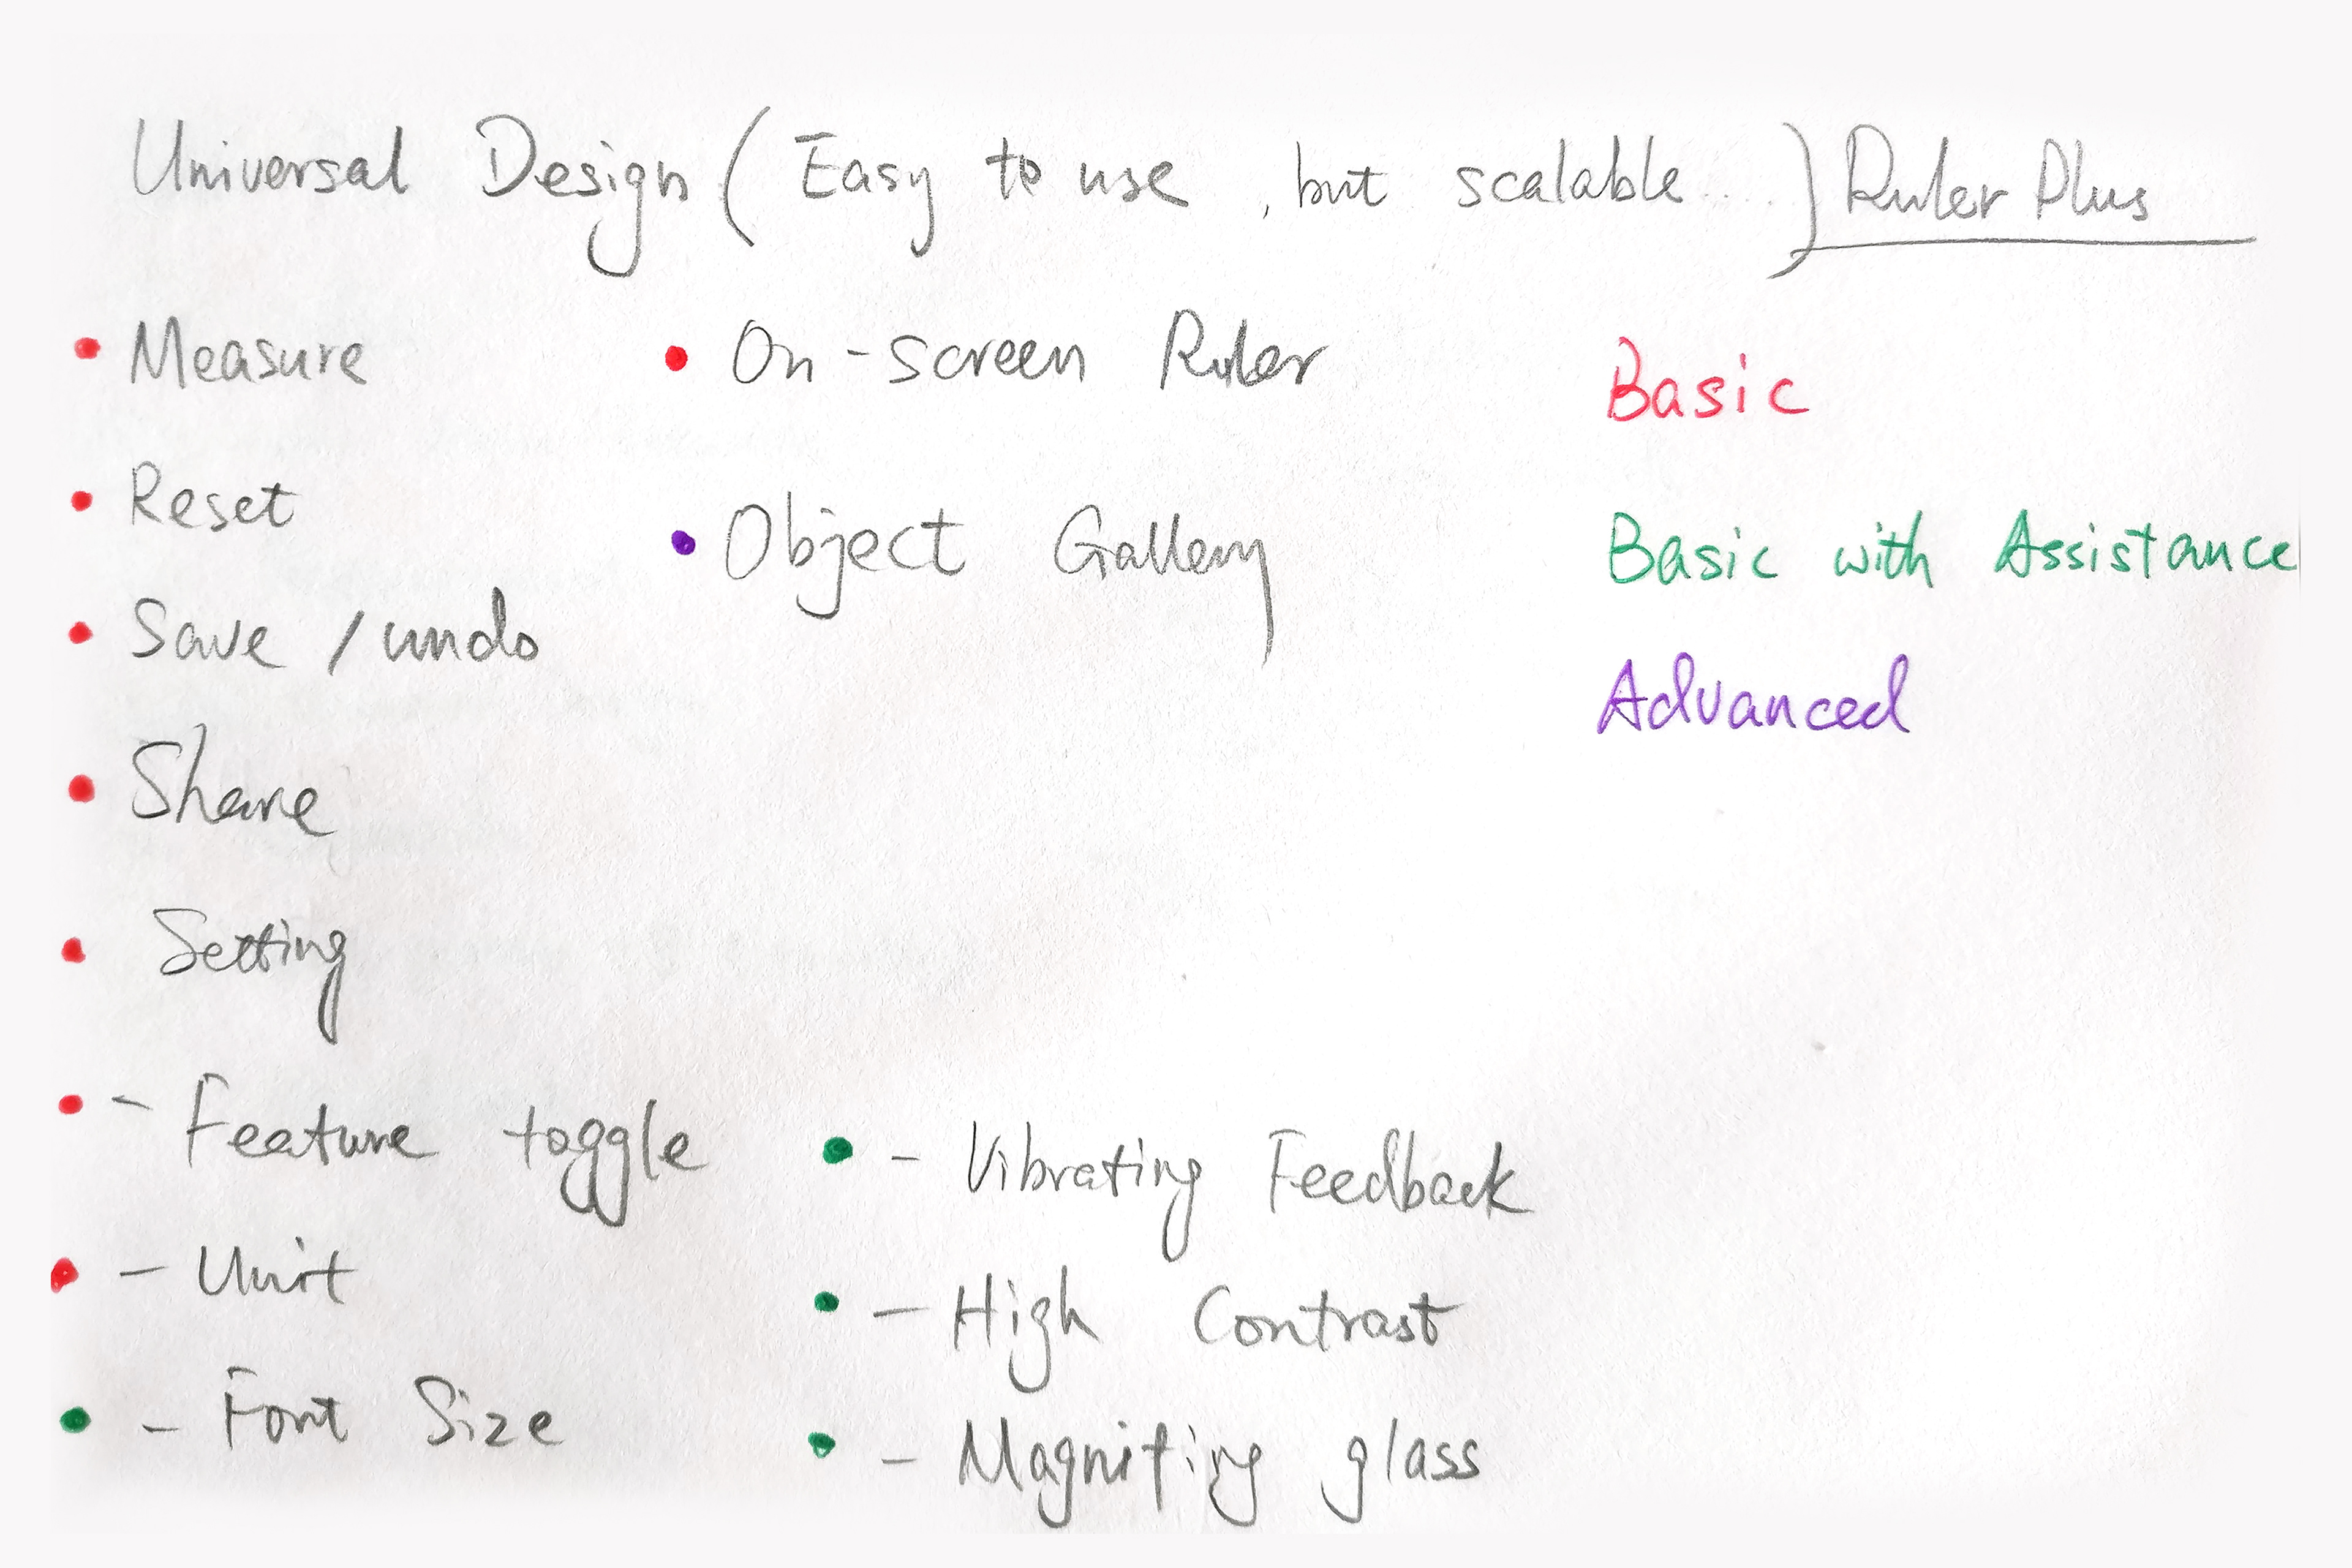 Universal Design ( Easy to use , but scalable .... ) Ruler Plus
• Measure
• Reset
• Save / undo
• Share
• Setting
• - Feature toggle
• - Unit
• - Font Size
• On-screen Ruler
• Object Gallery
• - Vibrating Feedback
• - High Contrast
• - Magnifing glass
Basic
Basic with Assistance
Advanced